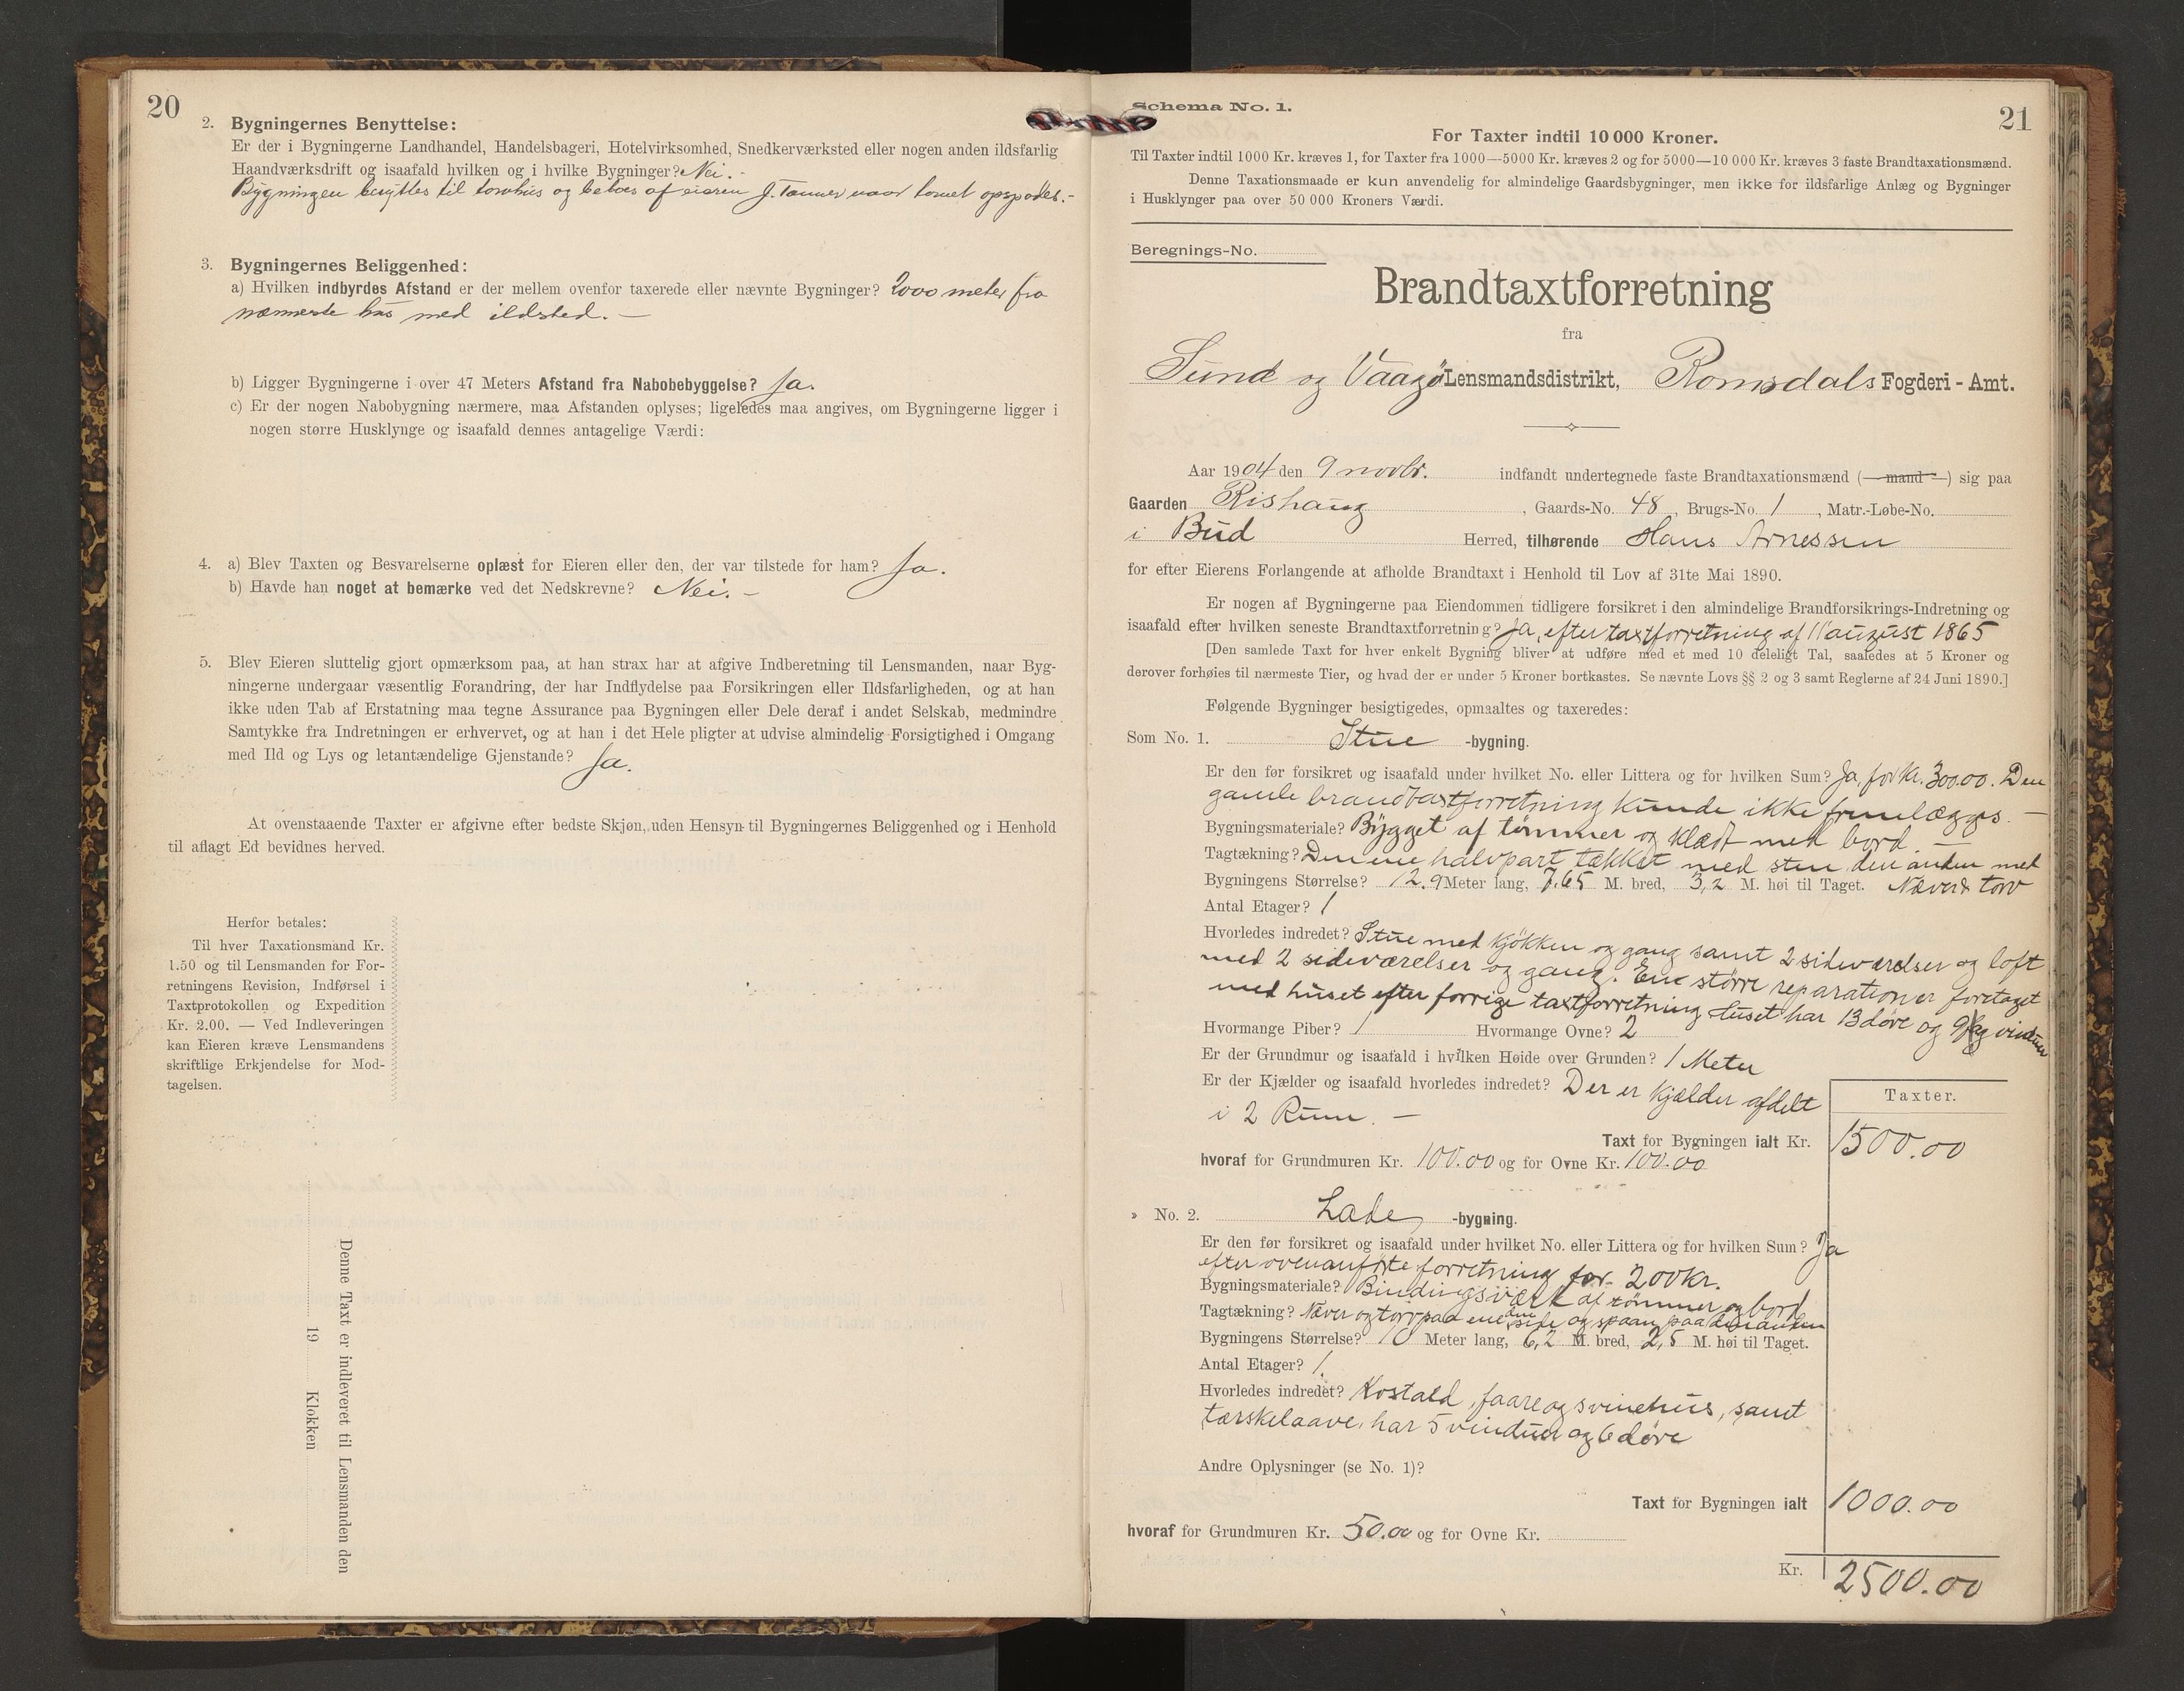 20
2. Bygningernes Benyttelse:
Er der i Bygningerne Landhandel, Handelsbageri, Hotelvirksomhed, Snedkerværksted eller nogen anden ildsfarlig
Haandværksdrift og isaafald hvilken og i hvilke Bygninger? Nei. -
Bygningen benyttes til torvhus og beboes af eieren J. Tanner naar torvet opspades. -
3. Bygningernes Beliggenhed:
a) Hvilken indbyrdes Afstand er der mellem ovenfor taxerede eller nævnte Bygninger? 2000 meter fra
nærmeste hus med ildsted. —
b) Ligger Bygningerne i over 47 Meters Afstand fra Nabobebyggelse? Ja.
c) Er der nogen Nabobygning nærmere, maa Afstanden oplyses; ligeledes maa angives, om Bygningerne ligger i
nogen større Husklynge og isaafald dennes antagelige Værdi:
4. a) Blev Taxten og Besvarelserne oplæst for Eieren eller den, der var tilstede for ham? Ja.
b) Havde han noget at bemærke ved det Nedskrevne? Nei. -
5. Blev Eieren sluttelig gjort opmærksom paa, at han strax har at afgive Indberetning til Lensmanden, naar Byg-
ningerne undergaar væsentlig Forandring, der har Indflydelse paa Forsikringen eller Ildsfarligheden, og at han
ikke uden Tab af Erstatning maa tegne Assurance paa Bygningen eller Dele deraf i andet Selskab, medmindre
Samtykke fra Indretningen er erhvervet, og at han i det Hele pligter at udvise almindelig Forsigtighed i Omgang
med Ild og Lys og letantændelige Gjenstande? Ja.
At ovenstaaende Taxter er afgivne efter bedste Skjøn, uden Hensyn til Bygningernes Beliggenhed og i Henhold
til aflagt Ed bevidnes herved.
Herfor betales:
Til hver Taxationsmand Kr.
1.50 og til Lensmanden for For-
retningens Revision, Indførsel i
Taxtprotokollen og Expedition
Kr. 2.00. — Ved Indleveringen
kan Eieren kræve Lensmandens
skriftlige Erkjendelse for Mod-
tagelsen.
Denne Taxt er indleveret til Lensmanden den
19 Klokken
21
Schema No. 1.
For Taxter indtil 10 000 Kroner.
Til Taxter indtil 1000 Kr. kræves 1, for Taxter fra 1000—5000 Kr. kræves 2 og for 5000—10 000 Kr. kræves 3 faste Brandtaxationsmænd.
Denne Taxationsmaade er kun anvendelig for almindelige Gaardsbygninger, men ikke for ildsfarlige Anlæg og Bygninger
i Husklynger paa over 50 000 Kroners Værdi.
Beregnings-No.
Brandtaxtforretning
fra
Sund og Vaagø Lensmandsdistrikt, Romsdals Fogderi - Amt.
Aar 1904 den 9 novbr. indfandt undertegnede faste Brandtaxationsmænd (— mand —) sig paa
Gaarden Rishaug, Gaards-No. 48, Brugs-No. 1, Matr.-Løbe-No.
i Bud Herred, tilhørende Hans Arnessen
for efter Eierens Forlangende at afholde Brandtaxt i Henhold til Lov af 31te Mai 1890.
Er nogen af Bygningerne paa Eiendommen tidligere forsikret i den almindelige Brandforsikrings-Indretning og
isaafald efter hvilken seneste Brandtaxtforretning? Ja, efter taxtforretning af 11 august 1865
[Den samlede Taxt for hver enkelt Bygning bliver at udføre med et med 10 deleligt Tal, saaledes at 5 Kroner og
derover forhøies til nærmeste Tier, og hvad der er under 5 Kroner bortkastes. Se nævnte Lovs §§ 2 og 3 samt Reglerne af 24 Juni 1890.]
Følgende Bygninger besigtigedes, opmaaltes og taxeredes:
Som No. 1. Stue -bygning.
Er den før forsikret og isaafald under hvilket No. eller Littera og for hvilken Sum? Ja, for Kr. 300.00. Den
gamle brandtaxtforretning kunde ikke fremlægges. —
Bygningsmateriale? Bygget af tømmer og klædt med bord. —
Tagtækning? Den ene halvpart tækket med sten den anden med
Bygningens Størrelse? 12.9 Meter lang, 7.65 M. bred, 3,2 M. høi til Taget. Næver & torv
Antal Etager? 1
Hvorledes indredet? Stue med kjøkken og gang samt 2 sideværelser og loft
med 2 sideværelser og gang. Ene større reparation er foretaget
med huset efter forrige taxtforretning Huset har 13 døre og 9 fag vinduer
Hvormange Piber? 1 Hvormange Ovne? 2
Er der Grundmur og isaafald i hvilken Høide over Grunden? 1 Meter
Er der Kjælder og isaafald hvorledes indredet? Der er kjælder afdelt
i 2 Rum. —
Taxter.
Taxt for Bygningen ialt Kr. 1500.00
hvoraf for Grundmuren Kr. 100.00 og for Ovne Kr. 100.00
» No. 2. Lade -bygning.
Er den før forsikret og isaafald under hvilket No. eller Littera og for hvilken Sum? Ja
efter ovenanførte forretning for 200 kr.
Bygningsmateriale? Bindingsværk af tømmer og bord
Tagtækning? Næver og torv paa ene den side og spaan paa den anden
Bygningens Størrelse? 10 Meter lang, 6,2 M. bred, 2,5 M. høi til Taget.
Antal Etager? 1.
Hvorledes indredet? Kostald, faare og svinehus, samt
tærskelaave, har 5 vinduer og 6 døre
Andre Oplysninger (se No. 1)?
Taxt for Bygningen ialt 1000.00
hvoraf for Grundmuren Kr. 50.00 og for Ovne Kr.
Kr. 2500.00